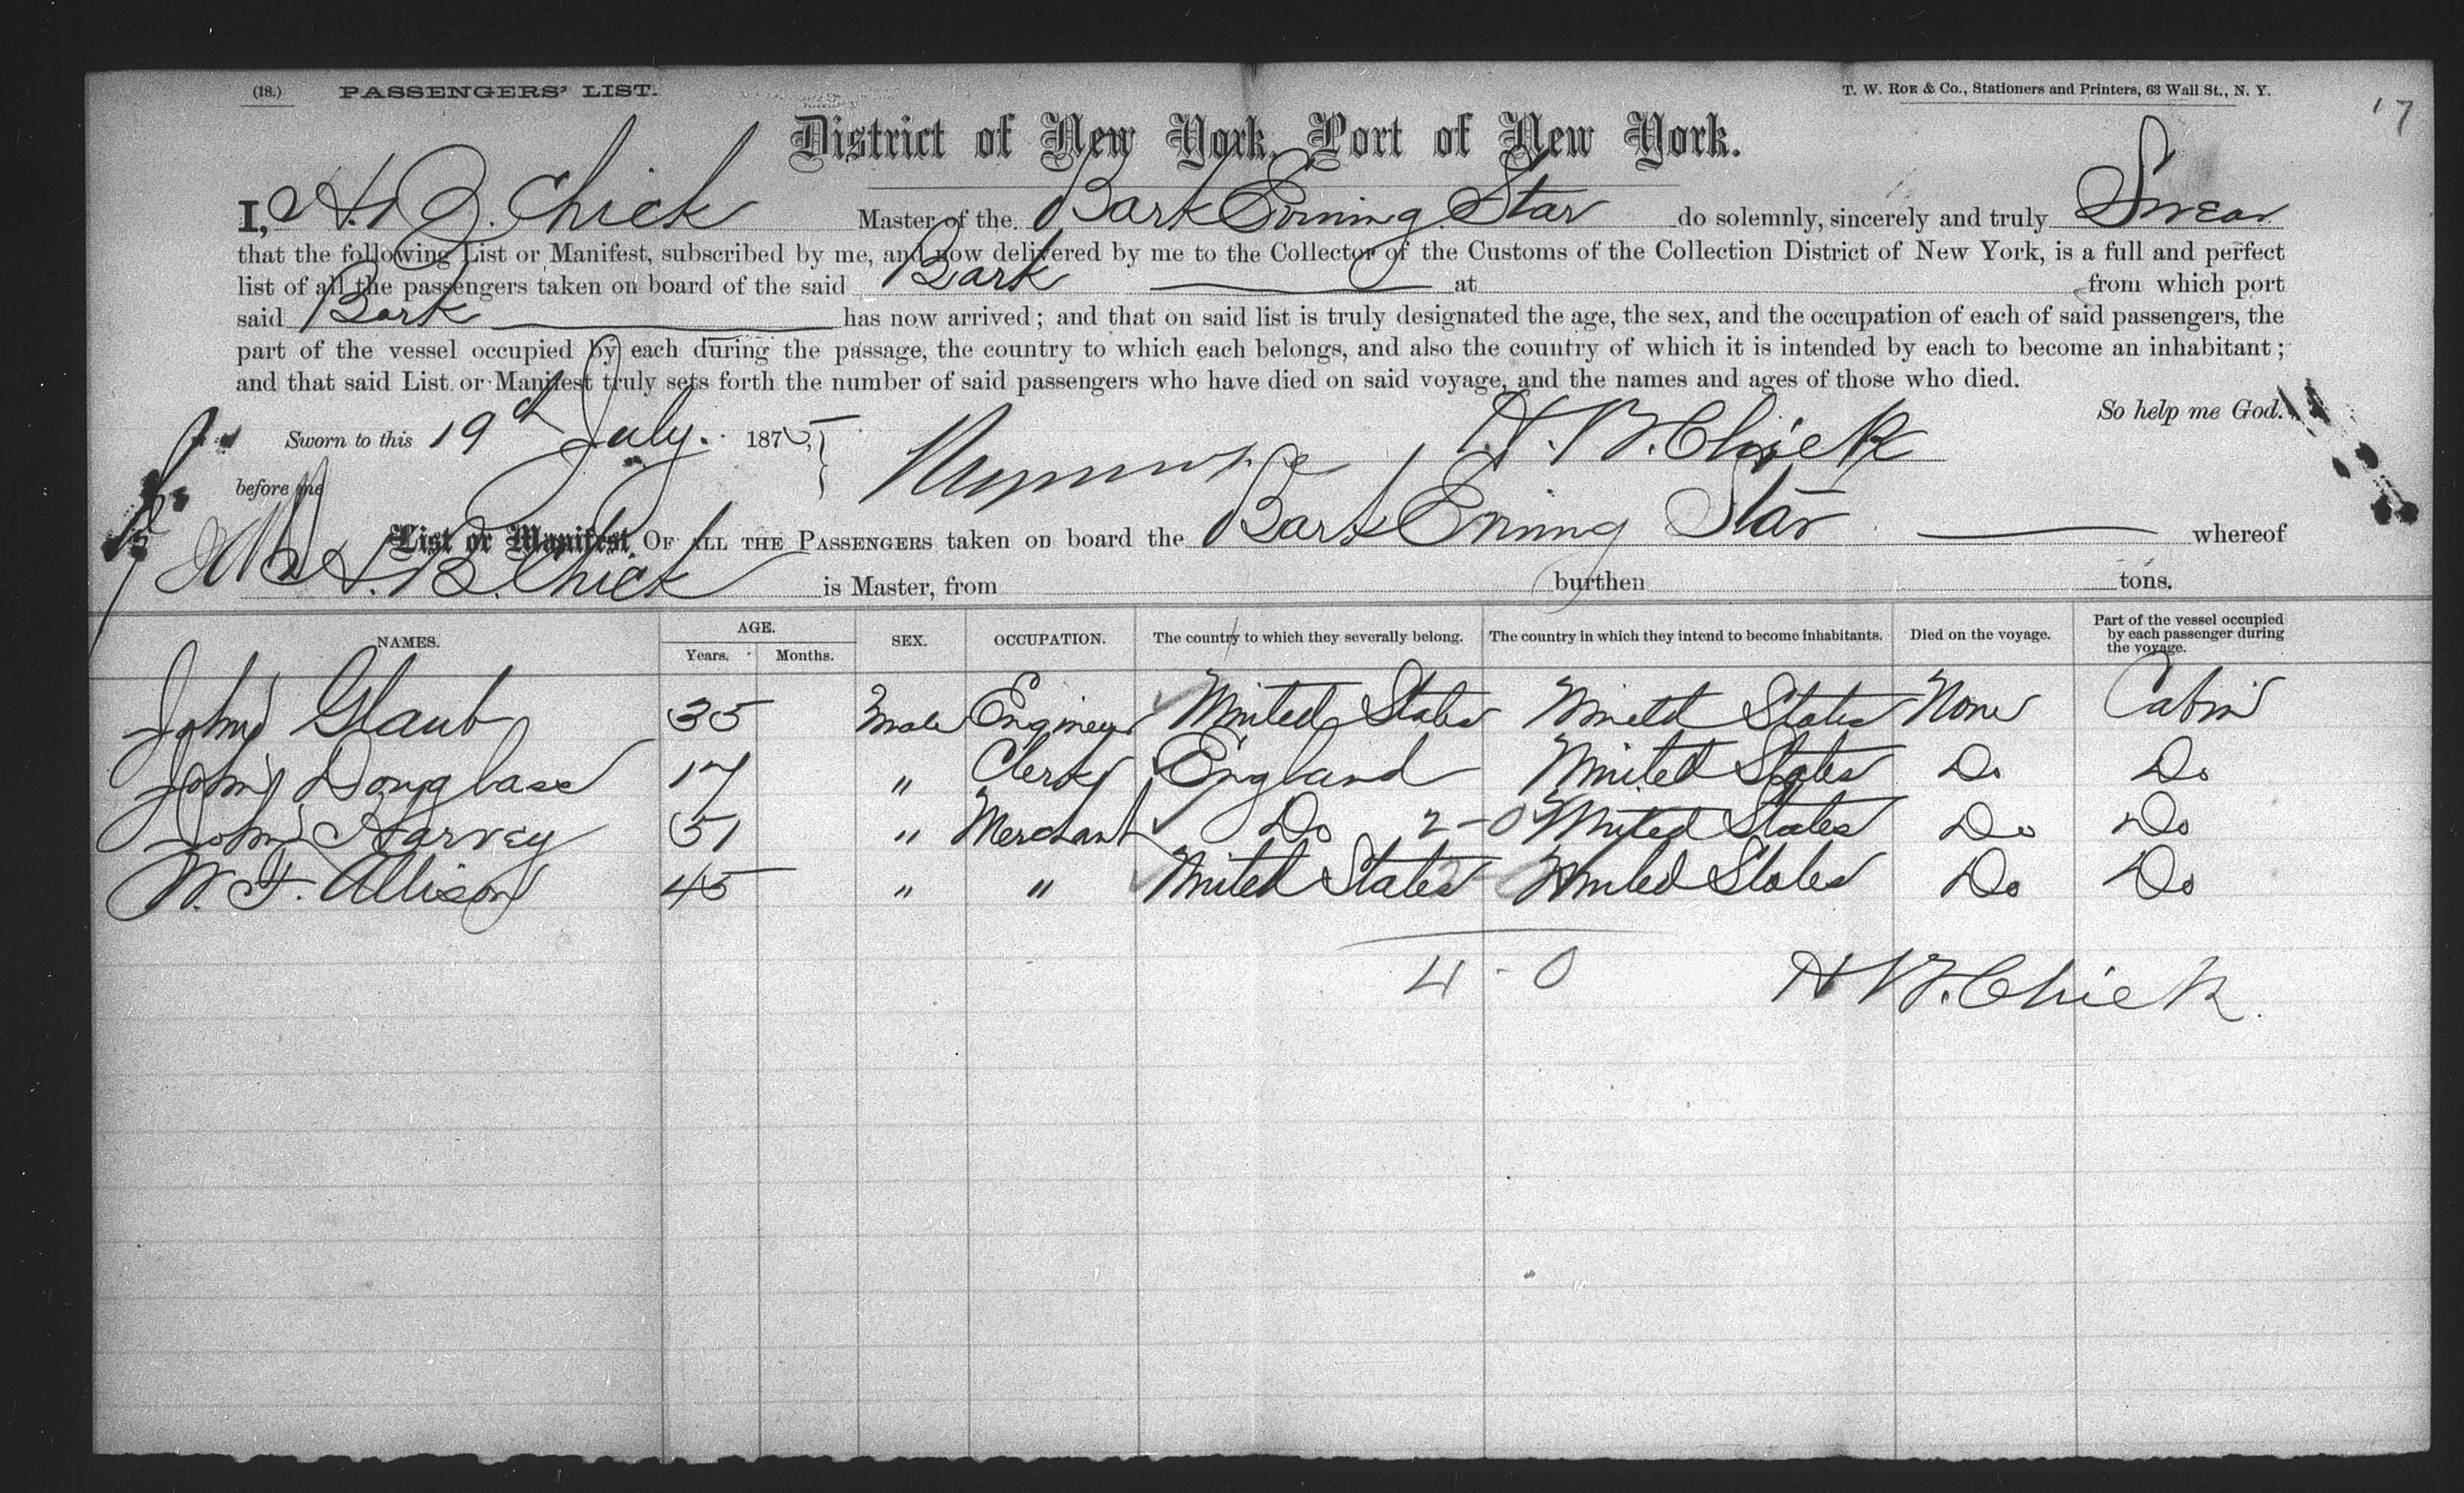 (18.) PASSENGERS' LIST. T. W. Roe & Co., Stationers and Printers, 63 Wall St., N. Y.
17
District of New York, Port of New York.
I, H. B. Chick Master of the Bark Evning Star do solemnly, sincerely and truly Swear
that the following List or Manifest, subscribed by me, and now delivered by me to the Collector of the Customs of the Collection District of New York, is a full and perfect
list of all the passengers taken on board of the said Bark at from which port
said Bark has now arrived; and that on said list is truly designated the age, the sex, and the occupation of each of said passengers, the
part of the vessel occupied by each during the passage, the country to which each belongs, and also the country of which it is intended by each to become an inhabitant;
and that said List or Manifest truly sets forth the number of said passengers who have died on said voyage, and the names and ages of those who died.
So help me God.
Sworn to this 19th July. 187 H. B. Chick
before me
List or Manifest, OF ALL THE PASSENGERS taken on board the Bark Evning Star whereof
H. B. Chick is Master, from burthen tons.
NAMES. AGE. Years. Months. SEX. OCCUPATION. The country to which they severally belong. The country in which they intend to become inhabitants. Died on the voyage. Part of the vessel occupied by each passenger during the voyage.
John Glaub 35 Male Engineer United States United States None Cabin
John Douglass 17 " Clerk England United States Do Do
John Harvey 51 " Merchant Do 2-0 United States Do Do
W. F. Allison 45 " " United States United States Do Do
4-0 H B. Chick